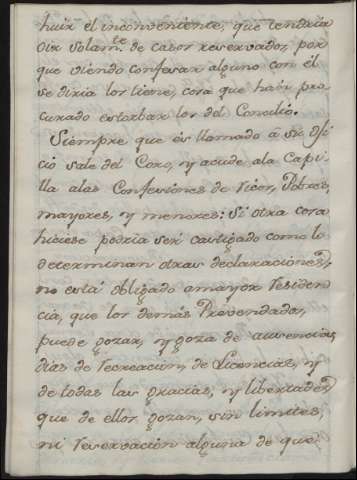 huir el inconveniente, que tendria
oir solam.te de casos reservados, por
que viendo confesar alguno con él
se diria los tiene, cosa que han pro
curado estorbar los del Concilio.
Siempre que és llamado á su ofi
cio sale del Coro, y acude ala Capi
lla alas Confesiones de ricos, Pobres,
mayores, y menores: Si otra cosa
hiciese podria ser castigado como lo
determinan otras declaraciones,
no está obligado amayor residen
cia, que los demás Prevendados,
puede gozar, y goza de ausencias,
dias de recreacion, de Licencias, y
de todas las gracias, y libertades
que de ellos gozan, sin limites,
ni reservacion alguna de que